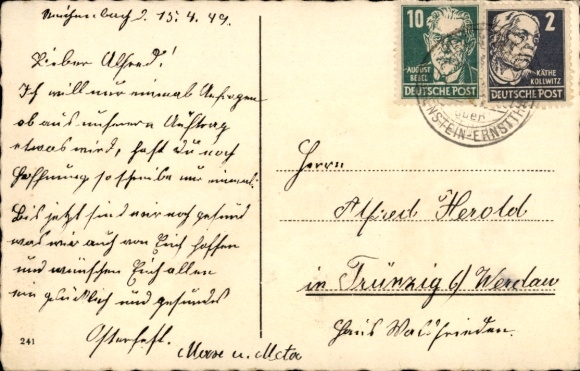 Reichenbach d. 15.4.49.
Lieber Alfred!
Ich will nur einmal anfragen
ob aus unserem Auftrag
etwas wird, hast Du noch
Hoffnung so schreibe mir einmal.
Bis jetzt sind wir noch gesund
was wir auch von Euch hoffen
und wünschen Euch allen
ein glücklich und gesundes
Osterfest.
241
10
AUGUST
BEBEL
DEUTSCHE POST
2
KÄTHE
KOLLWITZ
DEUTSCHE POST
ENSTEIN-ERNSTTH
Herrn
Alfred Herold
in Trünzig b/ Werdau
Haus Waldfrieden.
u. Meta